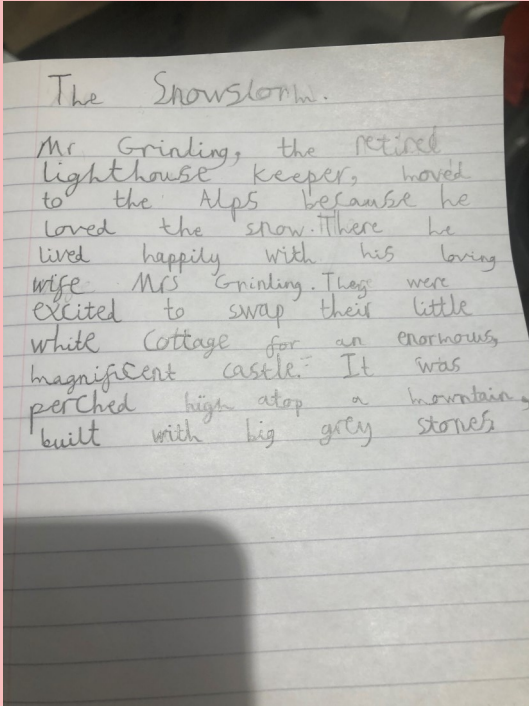 The Snowstorm.
Mr Grinling, the retired
lighthouse keeper, moved
to the Alps because he
loved the snow. There he
lived happily with his loving
wife Mrs Grinling. They were
excited to swap their little
white cottage for an enormous,
magnificent castle. It was
perched high atop a mountain,
built with big grey stones